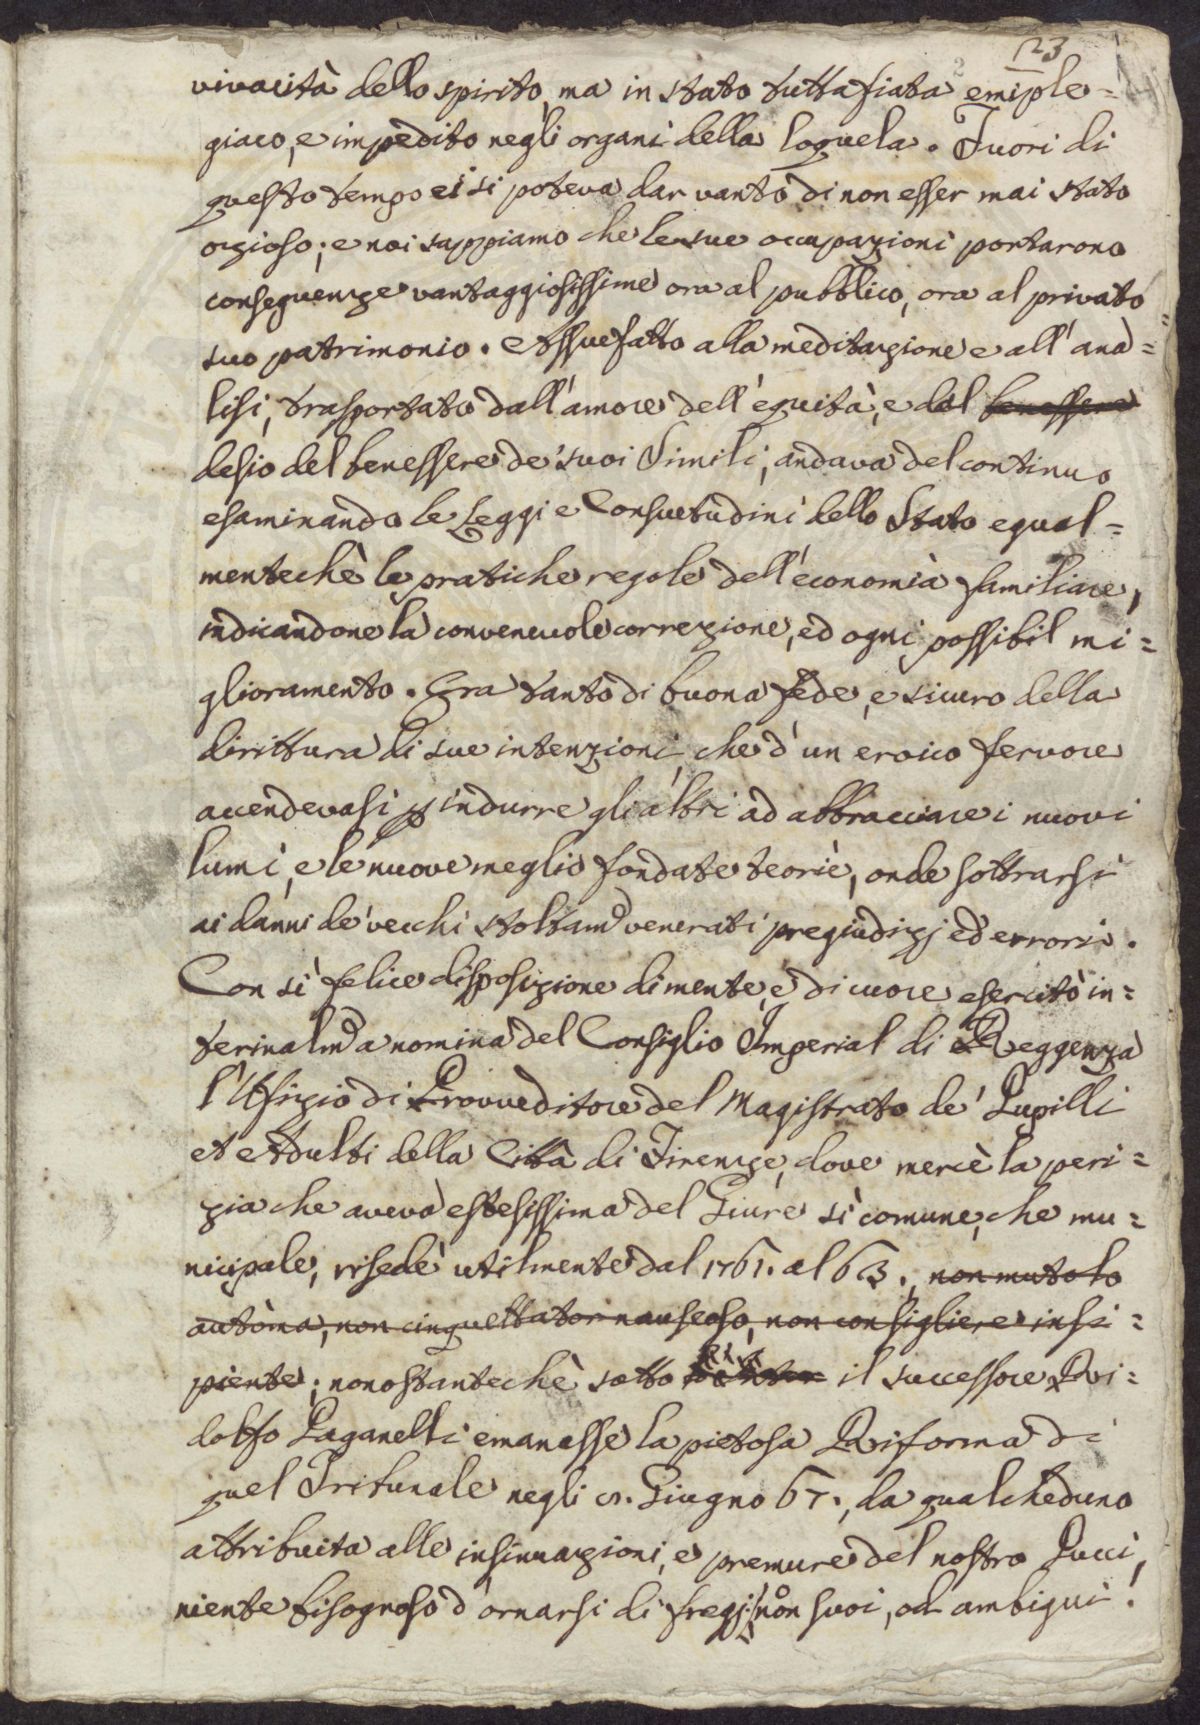 23
vivacità dello spirito, ma in stato tutta fiata emiple=
giaco, e impedito negli organi della loquela. Fuori di
questo tempo ei si poteva dar vanto di non esser mai stato
ozioso; e noi sappiamo che le sue occupazioni portarono
conseguenze vantaggiosissime ora al pubblico, ora al privato
suo patrimonio. Assuefatto alla meditazione e all'ana=
lisi, trasportato dall'amore dell'equità, e dal benessere
desio del benessere de' suoi Simili, andava del continuo
esaminando le Leggi e Consuetudini dello Stato egual=
mentechè le pratiche regole dell'economia familiare,
indicandone la convenevole correzione, ed ogni possibil mi=
glioramento. Era tanto di buona fede, e sicuro della
dirittura di sue intenzioni, che d'un eroico fervore
accendevasi p indurre gli altri ad abbracciare i nuovi
lumi, e le nuove meglio fondate teorie, onde sottrarsi
ai danni de' vecchi stoltamᵉ venerati pregiudizj ed errori.
Con sì felice disposizione di mente, e di cuore esercitò in=
terinalmᵉ a nomina del Consiglio Imperial di Reggenza
l'Ufizio di Provveditore del Magistrato de' Pupilli
et Adulti della Città di Firenze, dove mercè la peri=
zia che aveva estesissima del Giure sì comune, che mu=
nicipale, risedè utilmente dal 1761. al 63., non mutolo
autòma, non cinguettator nauseoso, non consigliere insi=
piente; nonostantechè sotto il successore Ri=
dolfo Paganelli emanasse la pietosa Riforma di
quel Tribunale negli Giugno 67., da qualcheduno
attribuita alle insinuazioni, e premure del nostro Pucci,
niente bisognoso d'ornarsi di fregj non suoi, od ambigui.